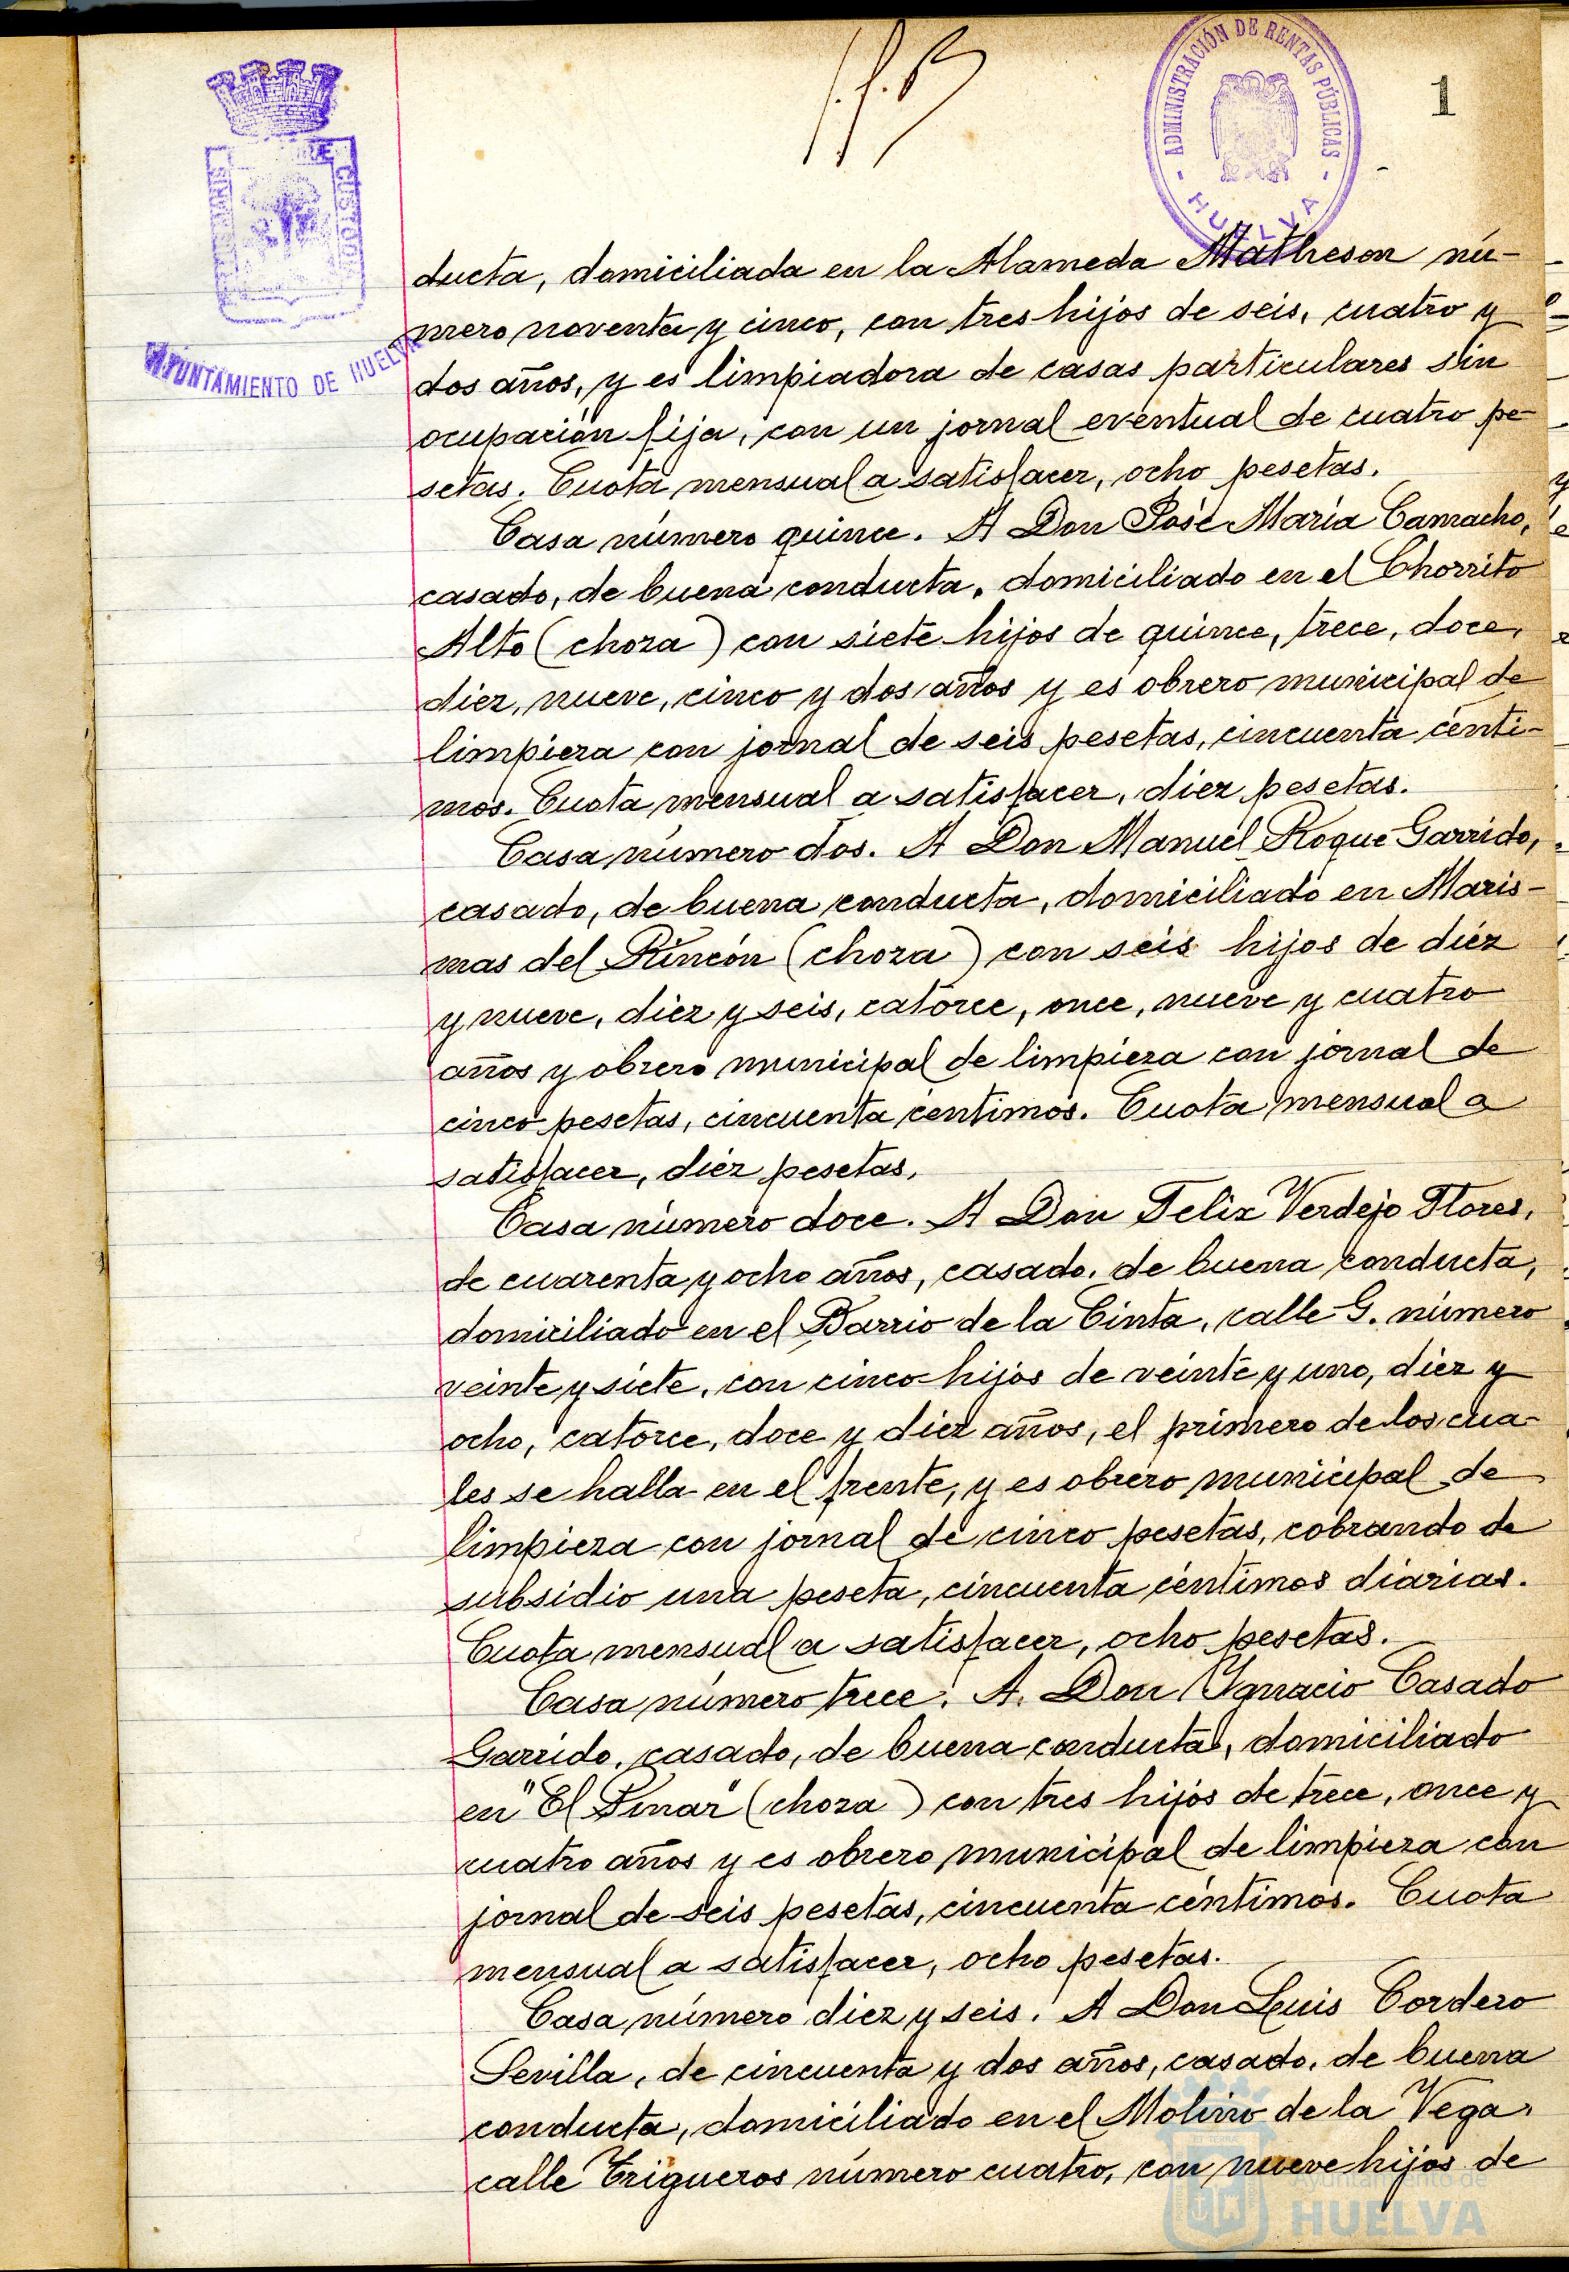 1
ADMINISTRACIÓN DE RENTAS PÚBLICAS
- HUELVA -
CUSTODIA
AYUNTAMIENTO DE HUELVA
ducta, domiciliada en la Alameda Matheson nú-
mero noventa y cinco, con tres hijos de seis, cuatro y
dos años, y es limpiadora de casas particulares sin
ocupación fija, con un jornal eventual de cuatro pe-
setas. Cuota mensual a satisfacer, ocho pesetas.
Casa número quince. A Don José María Camacho,
casado, de buena conducta, domiciliado en el Chorrito
Alto (choza) con siete hijos de quince, trece, doce,
diez, nueve, cinco y dos años y es obrero municipal de
limpieza con jornal de seis pesetas, cincuenta cénti-
mos. Cuota mensual a satisfacer, diez pesetas.
Casa número dos. A Don Manuel Roque Garrido,
casado, de buena conducta, domiciliado en Maris-
mas del Rincón (choza) con seis hijos de diez
y nueve, diez y seis, catorce, once, nueve y cuatro
años y obrero municipal de limpieza con jornal de
cinco pesetas, cincuenta céntimos. Cuota mensual a
satisfacer, diez pesetas.
Casa número doce. A Don Felix Verdejo Flores,
de cuarenta y ocho años, casado, de buena conducta,
domiciliado en el Barrio de la Cinta, calle G. número
veinte y siete, con cinco hijos de veinte y uno, diez y
ocho, catorce, doce y diez años, el primero de los cua-
les se halla en el frente, y es obrero municipal de
limpieza con jornal de cinco pesetas, cobrando de
subsidio una peseta, cincuenta céntimos diarias.
Cuota mensual a satisfacer, ocho pesetas.
Casa número trece. A. Don Ygnacio Casado
Garrido, casado, de buena conducta, domiciliado
en "El Pinar" (choza) con tres hijos de trece, once y
cuatro años y es obrero municipal de limpieza con
jornal de seis pesetas, cincuenta céntimos. Cuota
mensual a satisfacer, ocho pesetas.
Casa número diez y seis. A Don Luis Cordero
Sevilla, de cincuenta y dos años, casado, de buena
conducta, domiciliado en el Molino de la Vega,
calle Trigueros número cuatro, con nueve hijos de
Ayuntamiento de
HUELVA